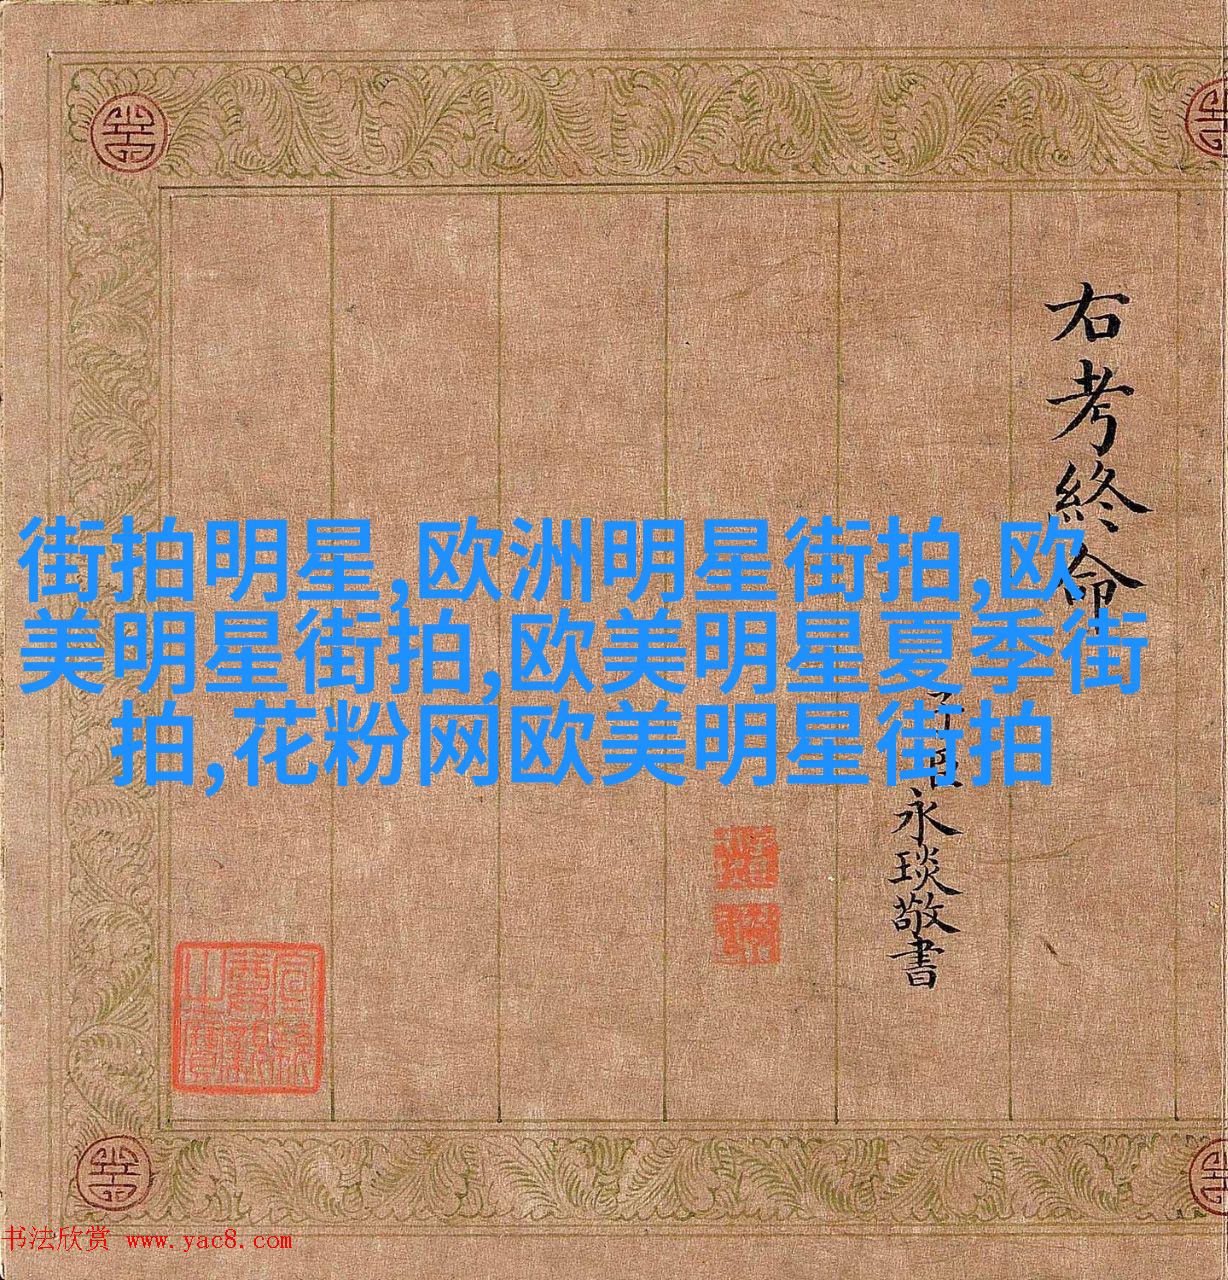 右考終命
子臣永琰敬書
街拍明星,欧洲明星街拍,欧
美明星街拍,欧美明星夏季街
拍,花粉网欧美明星街拍
书法欣赏 www.yac8.com